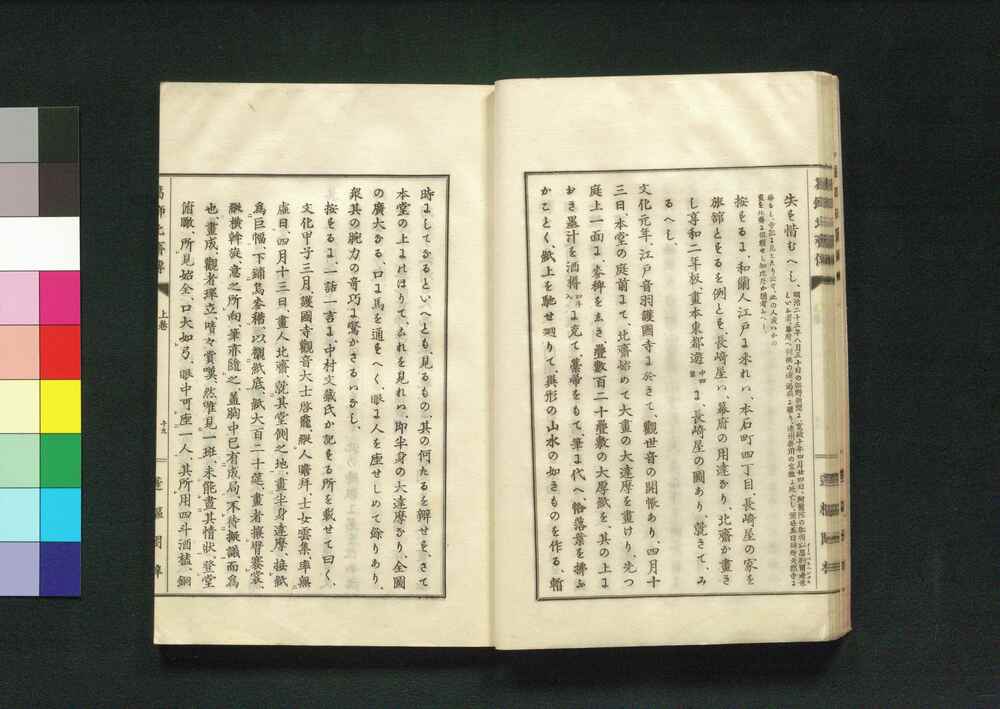 失を惜むへし、
按をるよ、和蘭人江戸よ来れハ、本石町四丁目、長崎屋の家を
旅舘とをるを例とを、長崎屋ハ、幕府の用達かり、北齋か畫き
し享和二年板、畫本東都遊よ、長崎屋の圖あり、就きて、み
るへし、
文化元年、江戸音羽護國寺よ於きて、觀世音の開帳あり、四月十
三日、本堂の庭前よて、北齋始めて大畫の大達摩を畫けり、先つ
庭上一面よ、麥稈をゑき、疊數百二十疊敷の大厚紙を、其の上よ
おき、墨汁を酒樽よ充て、藁帚をもて、筆よ代へ、恰落葉を掃ふ
かことく、紙上を馳せ廻りて、異形の山水の如きものを作る、暫
時よしてかるといへとも、見るもの、其の何たるを辧せを、さて
本堂の上よれほりて、ふれを見れハ、即半身の大達摩かり、全圖
の廣大かる、口よ馬を通をへく、眼よ人を座せしめて餘りあり、
衆其の腕力の竒巧よ驚かさるハかし、
按をるよ、一話一言よ、中村文藏氏か記をる所を載せて曰く、
文化甲子三月、護國寺觀音大士啓龕、縱人矚拜、士女雲集、率無
虚日、四月十三日、畫人北齋、就其堂側之地、畫半身達摩、接紙
爲巨幅、下鋪烏麥稭、以襯紙底、紙大百二十筵、畫者攘臂褰裳、
縱横斡旋、意之所向、筆亦隨之、蓋胸中已有成局、不待擬議而爲
也、畫成、觀者環立、嘖々賞嘆、然唯見一班、未能盡其情狀、登堂
俯瞰、所見始全、口大如弓、眼中可座一人、其所用四斗酒榼、銅
上卷
十九